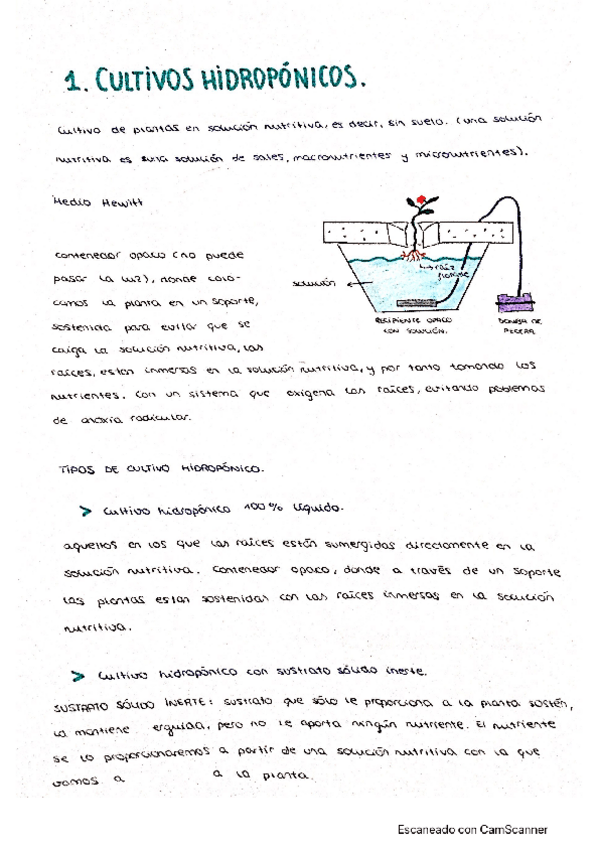 1. CULTIVOS HIDROPÓNICOS.
Cultivo de plantas en solución nutritiva, es decir, sin suelo. (una solución
nutritiva es una solución de sales, macronutrientes y micronutrientes).
Medio Hewitt
contenedor opaco (no puede
pasar la luz), donde colo-
camos la planta en un soporte,
sostenida para evitar que se
caiga la solución nutritiva, las
raíces, estan inmersas en la solución nutritiva, y por tanto tomando los
nutrientes. Con un sistema que oxigena las raíces, evitando problemas
de anoxia radicular.
solución
raíz
RECIPIENTE OPACO
CON SOLUCIÓN.
BOMBA DE
PECERA
TIPOS DE CULTIVO HIDROPÓNICO.
> Cultivo hidropónico 100% líquido.
aquellos en los que las raíces están sumergidas directamente en la
solución nutritiva. Contenedor opaco, donde a través de un soporte
las plantas estan sostenidas con las raíces inmersas en la solución
nutritiva.
> Cultivo hidropónico con sustrato sólido inerte.
SUSTRATO SÓLIDO INERTE: sustrato que sólo le proporciona a la planta sostén,
la mantiene erguida, pero no le aporta ningún nutriente. El nutriente
se lo proporcionaremos a partir de una solución nutritiva con la que
vamos a a la planta.
Escaneado con CamScanner